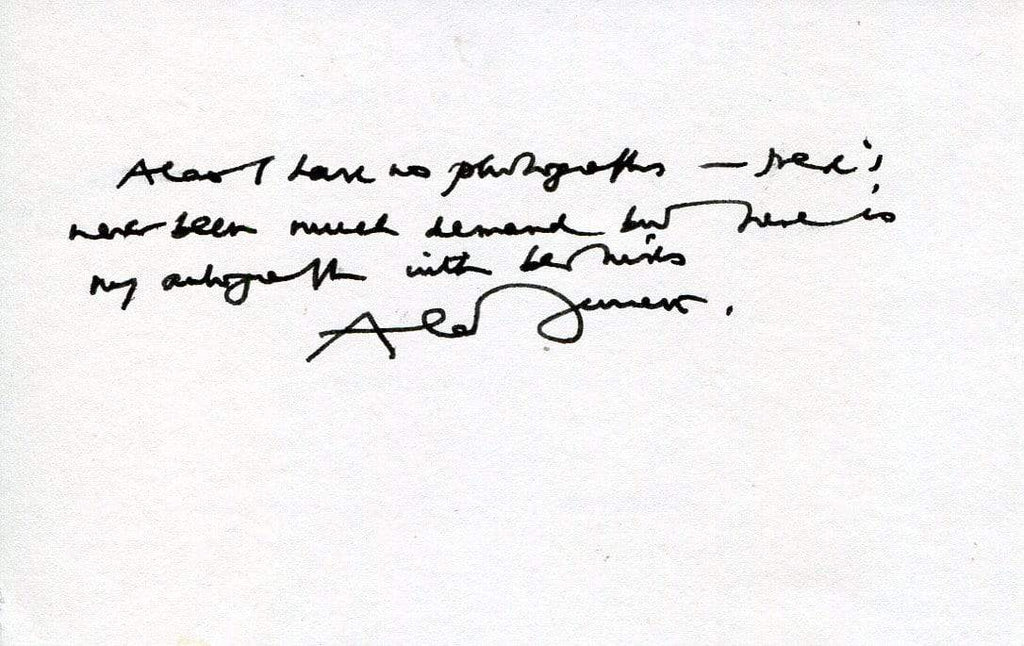 Alas I have no photographs — there's
never been much demand but here is
my autograph with best wishes
Alan Bennett.